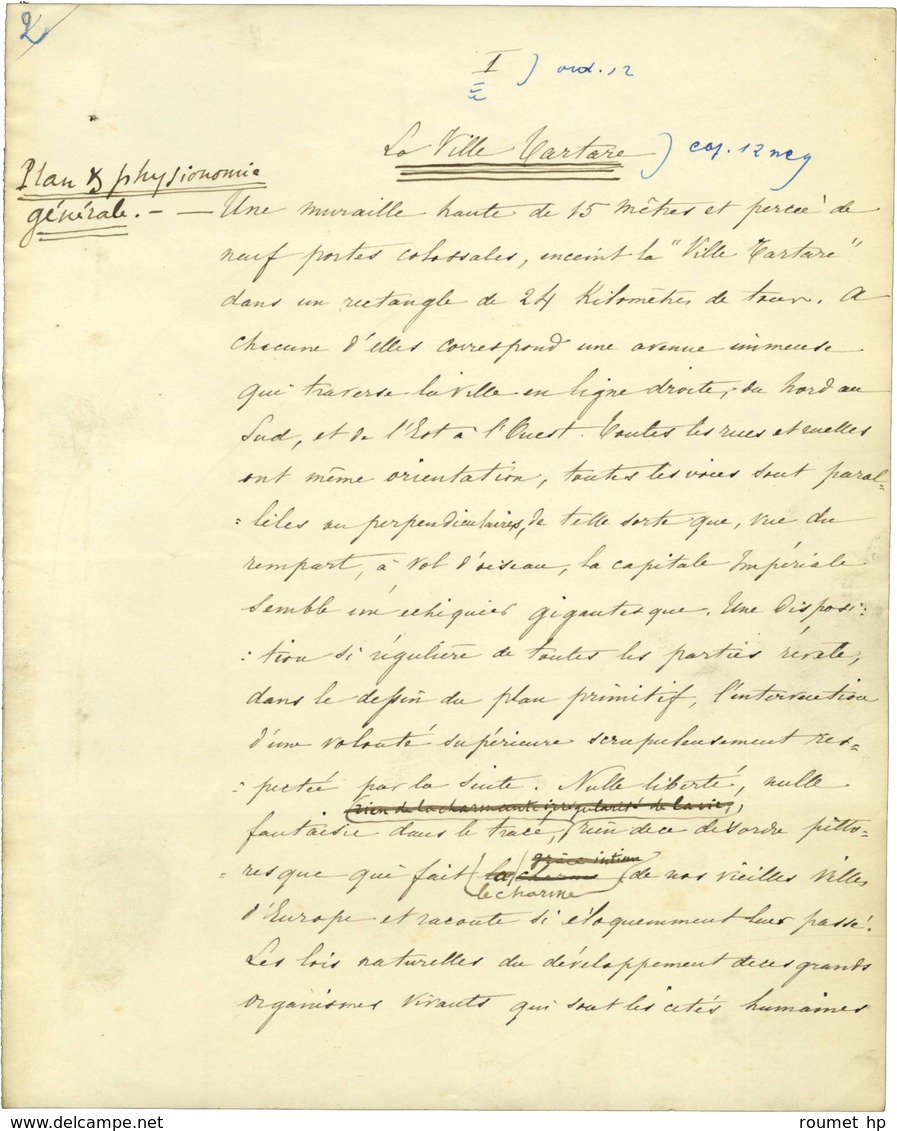 2
I ) ord. 12
La Ville Tartare ) cap. 12 neg
Plan & physionomie
générale. -
— Une muraille haute de 15 mètres et percée de
neuf portes colossales, enceint la "Ville Tartare"
dans un rectangle de 24 Kilomètres de tour. A
chacune d'elles correspond une avenue immense
qui traverse la ville en ligne droite, du Nord au
Sud, et de l'Est à l'Ouest. Toutes les rues et ruelles
ont même orientation, toutes les voies sont paral=
=lèles ou perpendiculaires, de telle sorte que, vue du
rempart, à vol d'oiseau, la capitale Impériale
semble un échiquier gigantesque. Une disposi:
:tion si régulière de toutes les parties révèle,
dans le dessin du plan primitif, l'intervention
d'une volonté supérieure scrupuleusement res=
=pectée par la suite. Nulle liberté, nulle
(rien de la charmante irrégularité de la vie,)
fantaisie dans le tracé, rien de ce désordre pitto=
grâce intime
=resque qui fait (la charme) de nos vieilles villes
le charme
d'Europe et raconte si éloquemment leur passé.
Les lois naturelles du développement de ces grands
organismes vivants qui sont les cités humaines
roumet hp